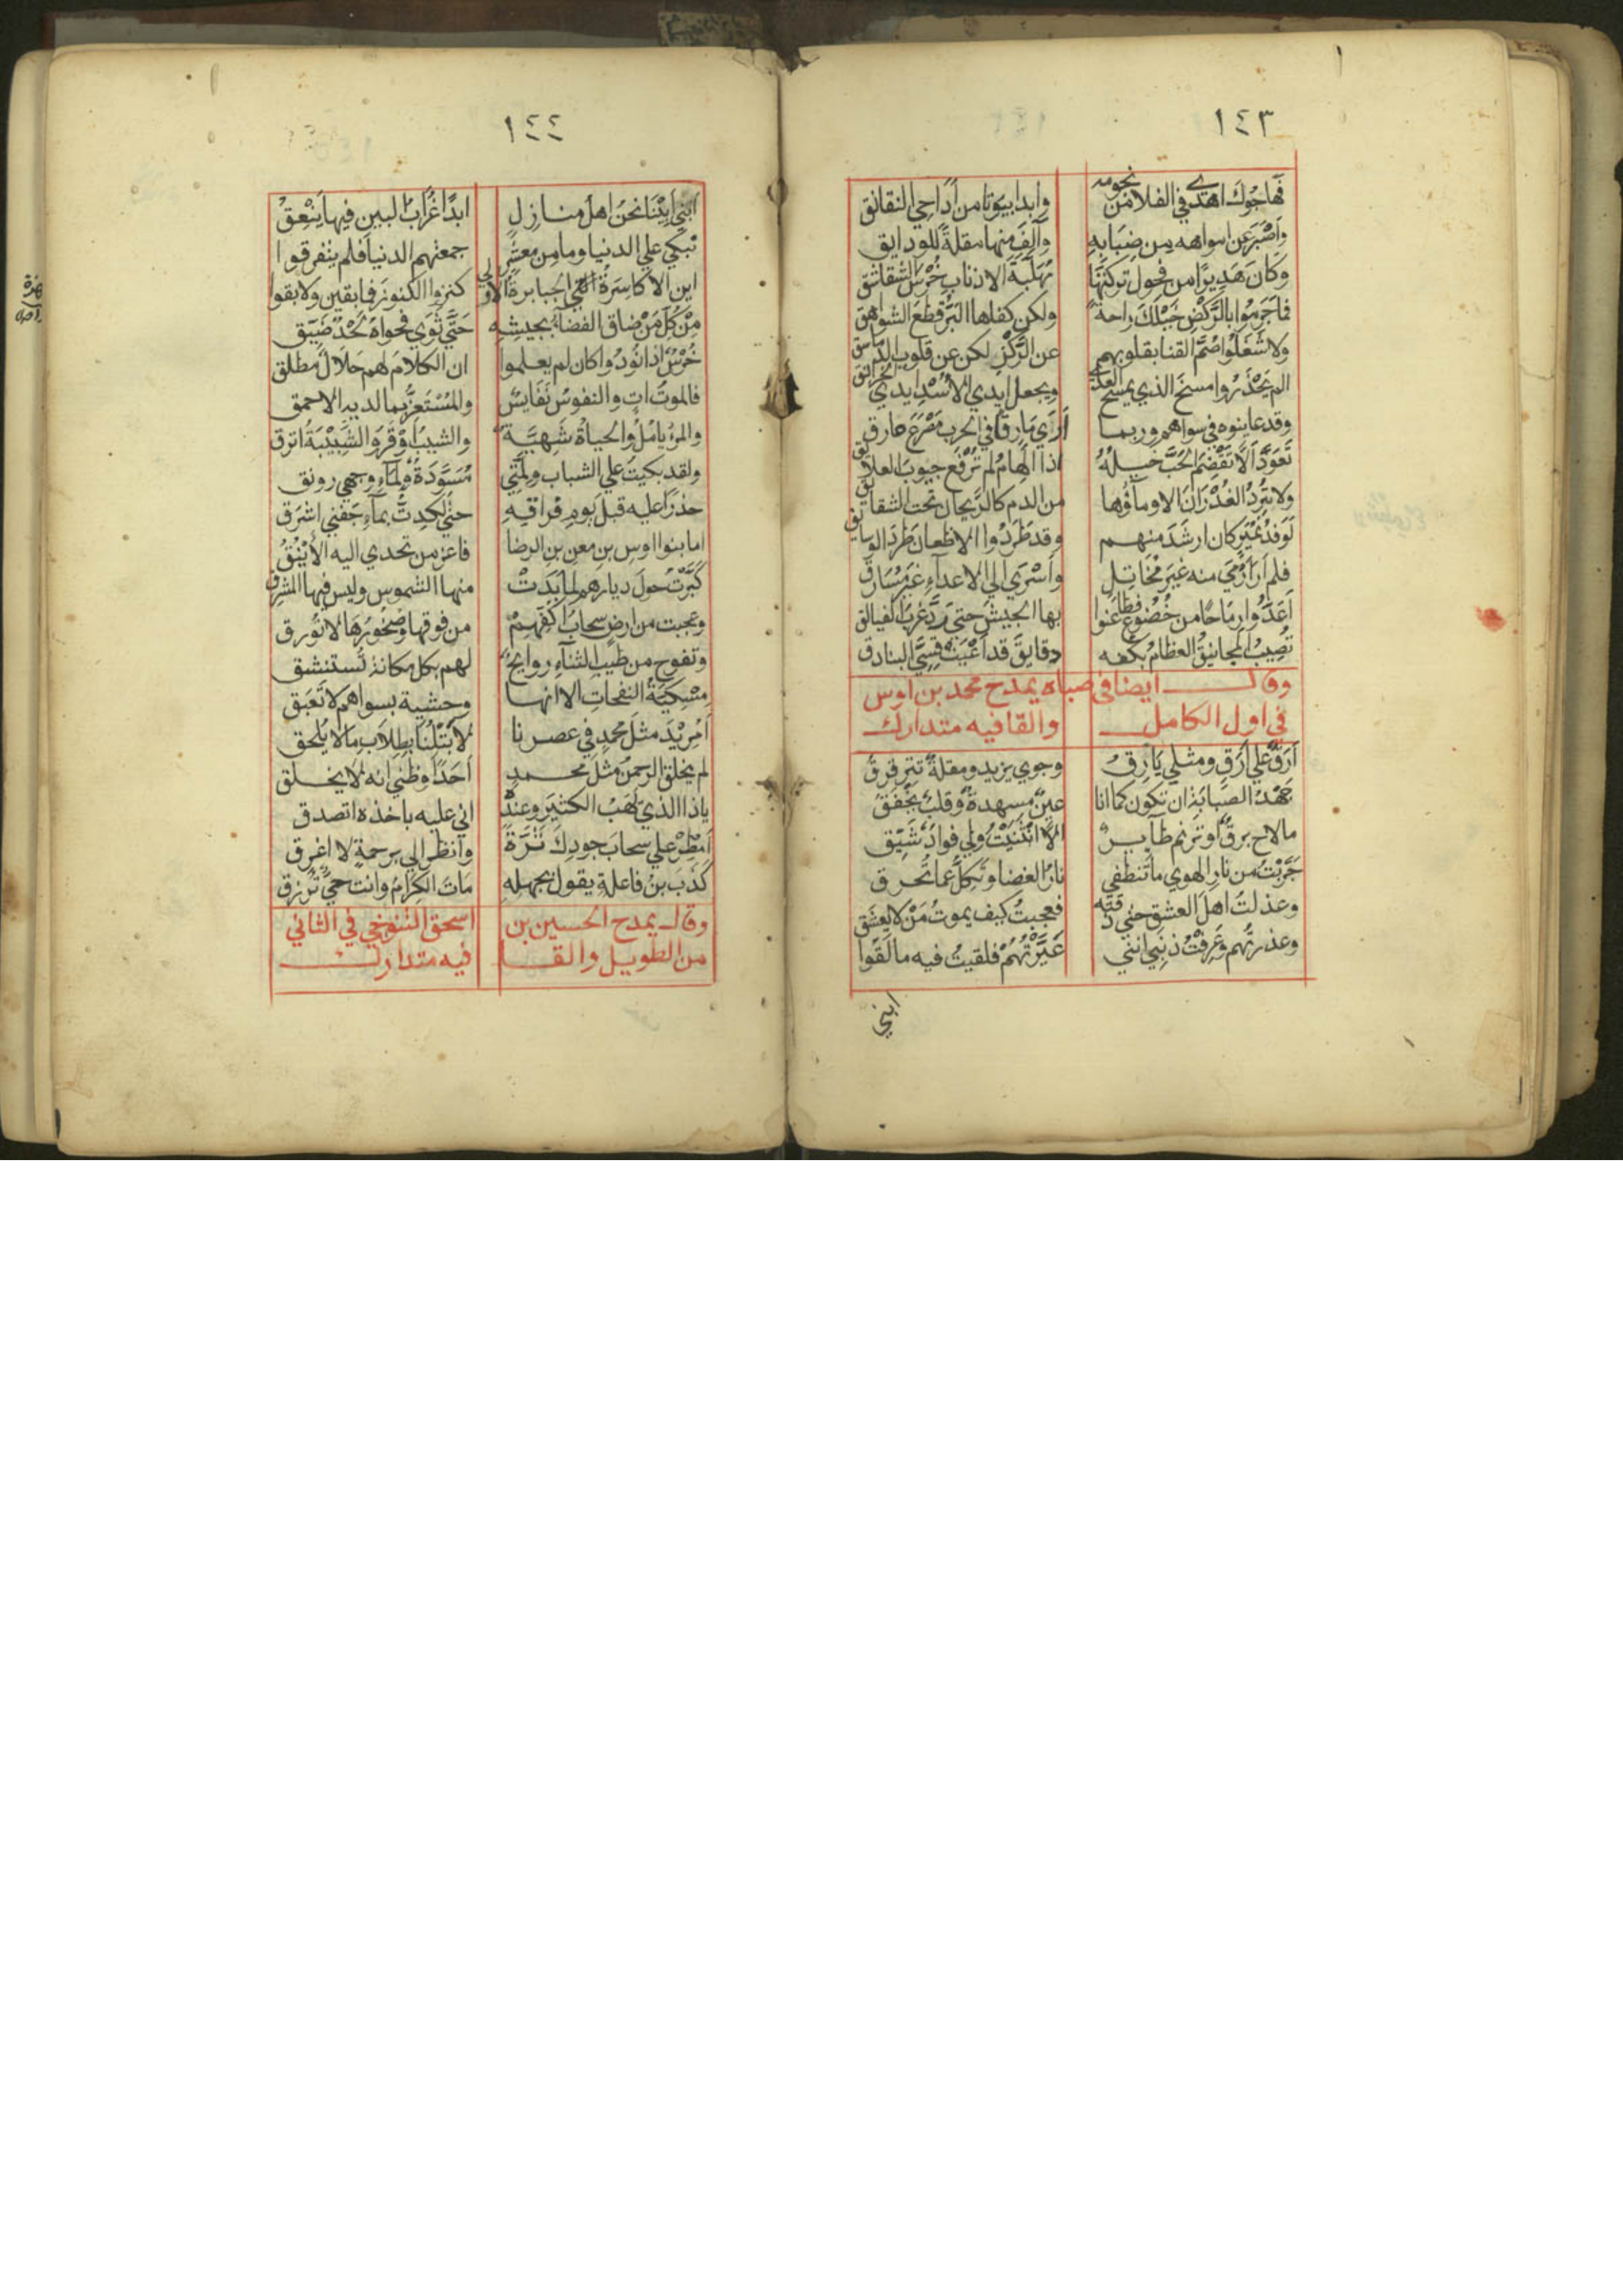 ١٤٣
فهاجوك اهدي في الفلا من نجومه وابدا بيوتا من اداحي النقانق
واصبر عن امواهه من ضبابه وآلف منها مقلة للودايق
وكان هديرا من فحول تركتها مهلبة الاذناب خرس الشقاشق
فما حرموا بالركض خيلك راحة ولكن كفاها البر قطع الشواهق
ولا شغلوا صم القنا بقلوبهم عن الركز لكن عن قلوب الدماسق
الم يحذروا مسخ الذي يمسخ العدي ويجعل ايدي الاسد ايدي الخرانق
وقد عاينوه في سواهم وربما اري مارقا في الحرب مصرع مارق
تعود الا تقضم الحب خيله اذا الهام لم ترفع جيوب العلايق
ولا ترد الغدران الا وماؤها من الدم كالريحان تحت الشقايق
لوفد نمير كان ارشد منهم وقد طردوا الاظعان طرد الوسايق
فلم ار ارمي منه غير مخاتل واسري الي الاعداء غير مسارق
اعدوا رماحا من خضوع فطاعنوا بها الجيش حتي رد غرب الفيالق
تصيب المجانيق العظام بكفه دقايق قد اعيت قسي البنادق
وقال ايضا في صباه يمدح محمد بن اوس
في اول الكامل والقافيه متدارك
ارق علي ارق ومثلي يارق وجوي يزيد ومقلة تترقرق
جهد الصبابة ان تكون كما انا عين مسهدة وقلب يخفق
ما لاح برق او ترنم طاير الا انثنيت ولي فواد شيق
جربت من نار الهوي ما تنطفي نار الغضا وتكل عما تحرق
وعذلت اهل العشق حتي ذقته فعجبت كيف يموت من لا يعشق
وعذرتهم وعرفت ذنبي انني عيرتهم فلقيت فيه ما لقوا
ابني
١٤٤
ابني ابينا نحن اهل منازل ابدا غراب البين فيها ينعق
نبكي علي الدنيا وما من معشر جمعتهم الدنيا فلم يتفرقوا
اين الاكاسرة الجبابرة الاولي كنزوا الكنوز فما بقين ولا بقوا
من كل من ضاق الفضاء بجيشه حتي ثوي فحواه لحد ضيق
خرس اذا نودوا كان لم يعلموا ان الكلام لهم حلال مطلق
فالموت ات والنفوس نفايس والمستعز بما لديه الاحمق
والمرء يامل والحياة شهية والشيب اوقر والشبيبة انزق
ولقد بكيت علي الشباب ولمتي مسودة ولماء وجهي رونق
حذرا عليه قبل يوم فراقه حتي لكدت بماء جفني اشرق
اما بنوا اوس بن معن بن الرضا فاعز من تحدي اليه الاينق
كبرت حول ديارهم لما بدت منها الشموس وليس فيها المشرق
وعجبت من ارض سحاب اكفهم من فوقها وصخورها لا تورق
وتفوح من طيب الثناء روايح لهم بكل مكانة تستنشق
مسكية النفحات الا انها وحشية بسواهم لا تعبق
امريد مثل محمد في عصرنا لا تبلنا بطلاب ما لا يلحق
لم يخلق الرحمن مثل محمد احدا وظني انه لا يخلق
يا ذا الذي يهب الكثير وعنده اني عليه باخذه اتصدق
امطر علي سحاب جودك ثرة وانظر الي برحمة لا اغرق
كذب بن فاعلة يقول بجهله مات الكرام وانت حي ترزق
وقال يمدح الحسين بن اسحق التنوخي في الثاني
من الطويل والقافيه متدارك